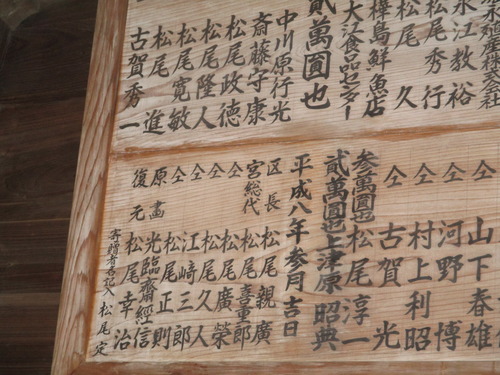 永江教裕
松尾秀行
松尾久
樺島鮮魚店
大江食品センター
貮萬圓也
中川原行光
斎藤守康
松尾政徳
松尾隆人
松尾寛敏
松尾進
古賀秀一
山下春雄
仝 河野博
仝 村上利昭
仝 古賀光
参萬圓也 松尾淳一
貮萬圓也 上津原昭典
平成八年参月吉日
区長 松尾親廣
宮総代 松尾喜重郎
仝 松尾廣榮
仝 松尾久人
仝 江﨑三郎
仝 松尾正則
原畵 光臨齋經信
復元 松尾幸治
寄贈者名記入 松尾定